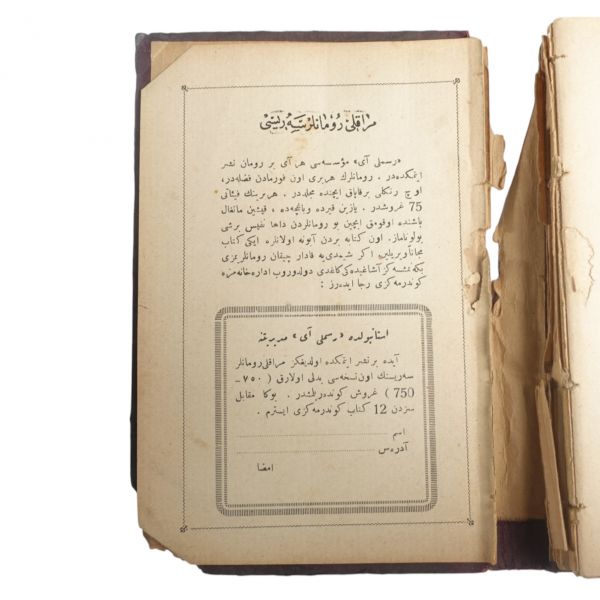 مراقلی رومانلر سه‌ریسی
«رسملی آی» مؤسسه‌سی هر آی بر رومان نشر
ایتمکده‌در . رومانلرك هربری اون فورمادن فضله‌در،
اوچ رنکلی بر قاپاق ایچنده مجلددر . هر برینك فیئاتی
75 غروشدر . یازین قیرده و باغچه‌ده ، قیشین مانغال
باشنده اوقومق ایچین بو رومانلردن داها نفیس برشی
بولوناماز. اون کتابه بردن آبونه اولانلره ایکی کتاب
مجاناً ویریلیر. اکر شیمدی‌یه قادار چیقان رومانلریمزی
کاغدی دولدوروب اداره‌خانه مزه
کوندرمه‌کزی رجا ایده‌رز :
استانبولده «رسملی آی» مدیریتنه
آیده بر نشر ایتمکده اولدیغکز مراقلی رومانلر
سه‌ریسنك اون نسخه‌سی بدلی اولارق ( ۷۵۰ -
750 ) غروش کوندریلمشدر . بوکا مقابل
سزدن 12 کتاب کوندرمه‌کزی ایسترم .
اسم
آدره‌س
امضا